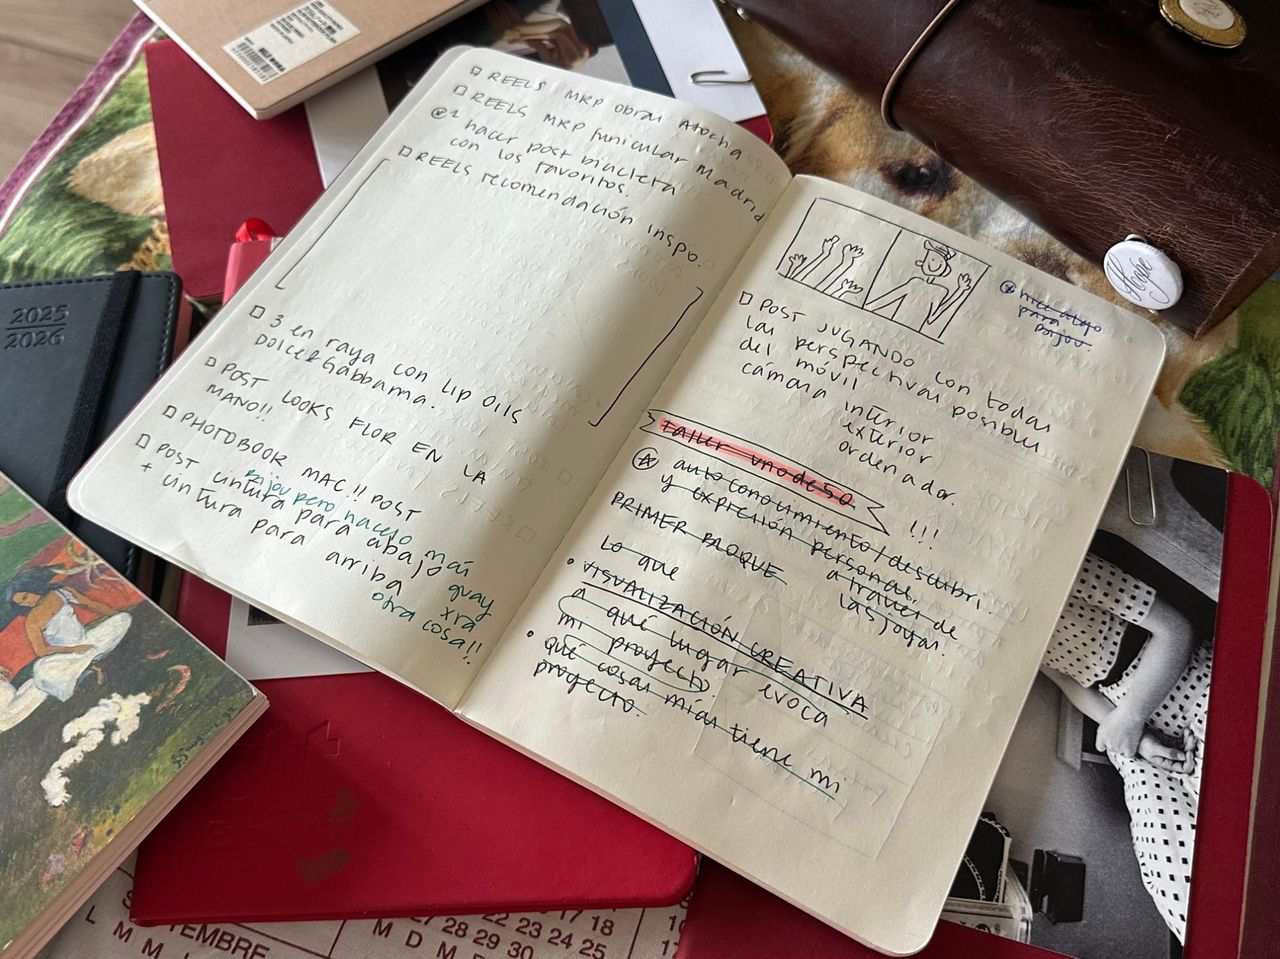 REELS MRP obras Atocha
REELS MRP funicular Madrid
1 hacer post bicicleta
con los favoritos.
REELS recomendación inspo.
3 en raya con LIP OILS
Dolce&Gabbama.
POST LOOKS FLOR EN LA
MANO!!
PHOTOBOOK MAC!! POST
POST cintura para abajo
+ cintura para arriba
bijou pero hacerlo más
guay
xra
otra cosa!!
nice algo
para
bijou.
POST JUGANDO con todas
las perspectivas posibles
del móvil
cámara interior
exterior
ordenador.
!!!
TALLER unode50
autoconocimiento/descubri.
y expresión personal.
a través de
las joyas.
PRIMER BLOQUE
Lo que
VISUALIZACIÓN CREATIVA
a qué lugar evoca
mi proyecto
qué cosas mías tiene mi
proyecto.
2025
2026
Hope
L M M
27 28 29 30
16 17 18
23 24 25
M D M